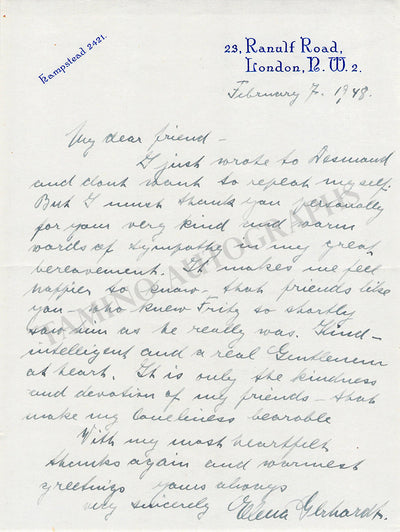 Hampstead 2421.
23, Ranulf Road,
London, N.W.2.
February 7. 1948.
My dear friend –
I just wrote to Desmond
and dont want to repeat myself.
But I must thank you personally
for your very kind and warm
words of sympathy in my great
bereavement. It makes me feel
happier to know – that friends like
you who knew Fritz so shortly
saw him as he really was. Kind –
intelligent and a real Gentlemen
at heart. It is only the kindness
and devotion of my friends – that
make my loneliness bearable
With my most heartfelt
thanks again and warmest
greetings yours always
very sincerely Elena Gerhardt.
TAMINO AUTOGRAPHS